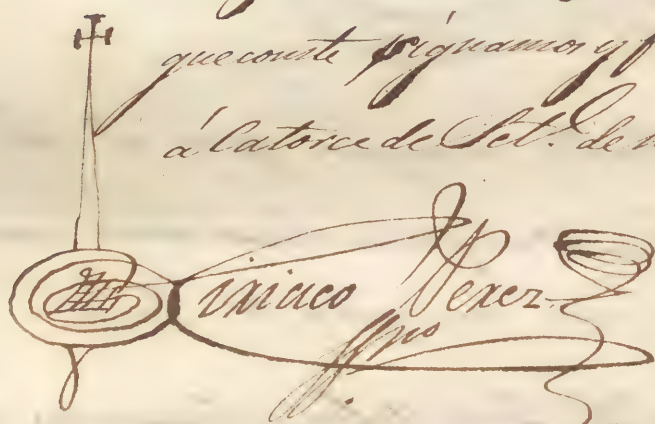 que conste signamos y f
á Catorce de Set.e de
Ciriaco Perez